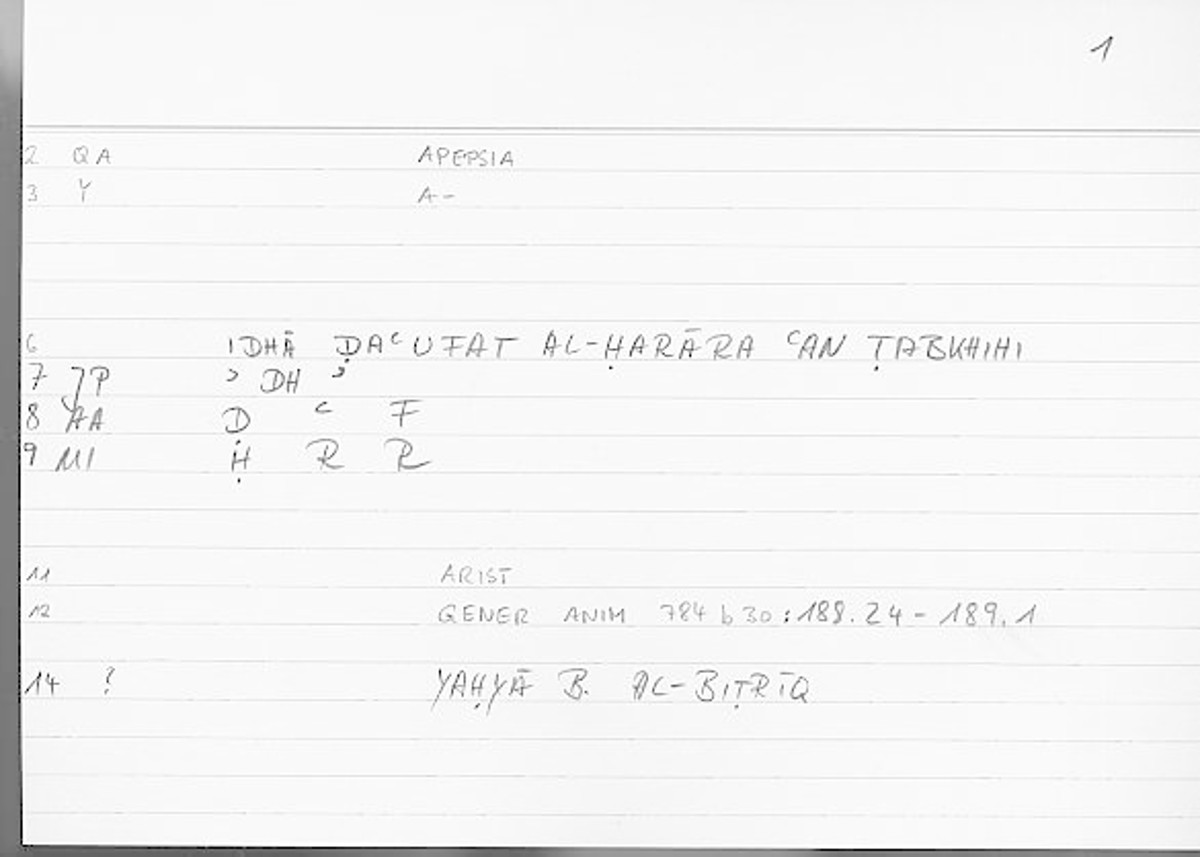 1
2 QA APEPSIA
3 Y A-
6 IDHĀ ḌAʿUFAT AL-ḤARĀRA ʿAN ṬABKHIHI
7 JP ʾ DH ʾ
8 AA Ḍ ʿ F
9 MI Ḥ R R
11 ARIST
12 GENER ANIM 784 b 30 : 188.24 - 189.1
14 ? YAḤYĀ B. AL-BIṬRĪQ